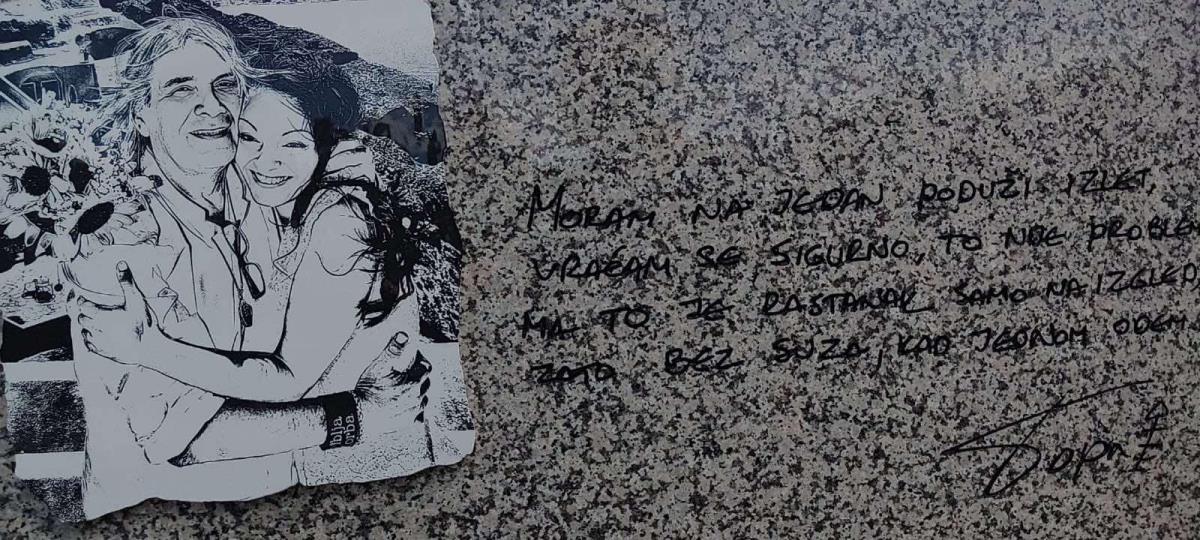 MORAM NA JEDAN PODUŽI IZLET,
VRAĆAM SE SIGURNO, TO NIJE PROBLE
MA TO JE RASTANAK SAMO NA IZGLED
ZATO BEZ SUZA, KAD JEDNOM ODEM
Бора
iblja
orba